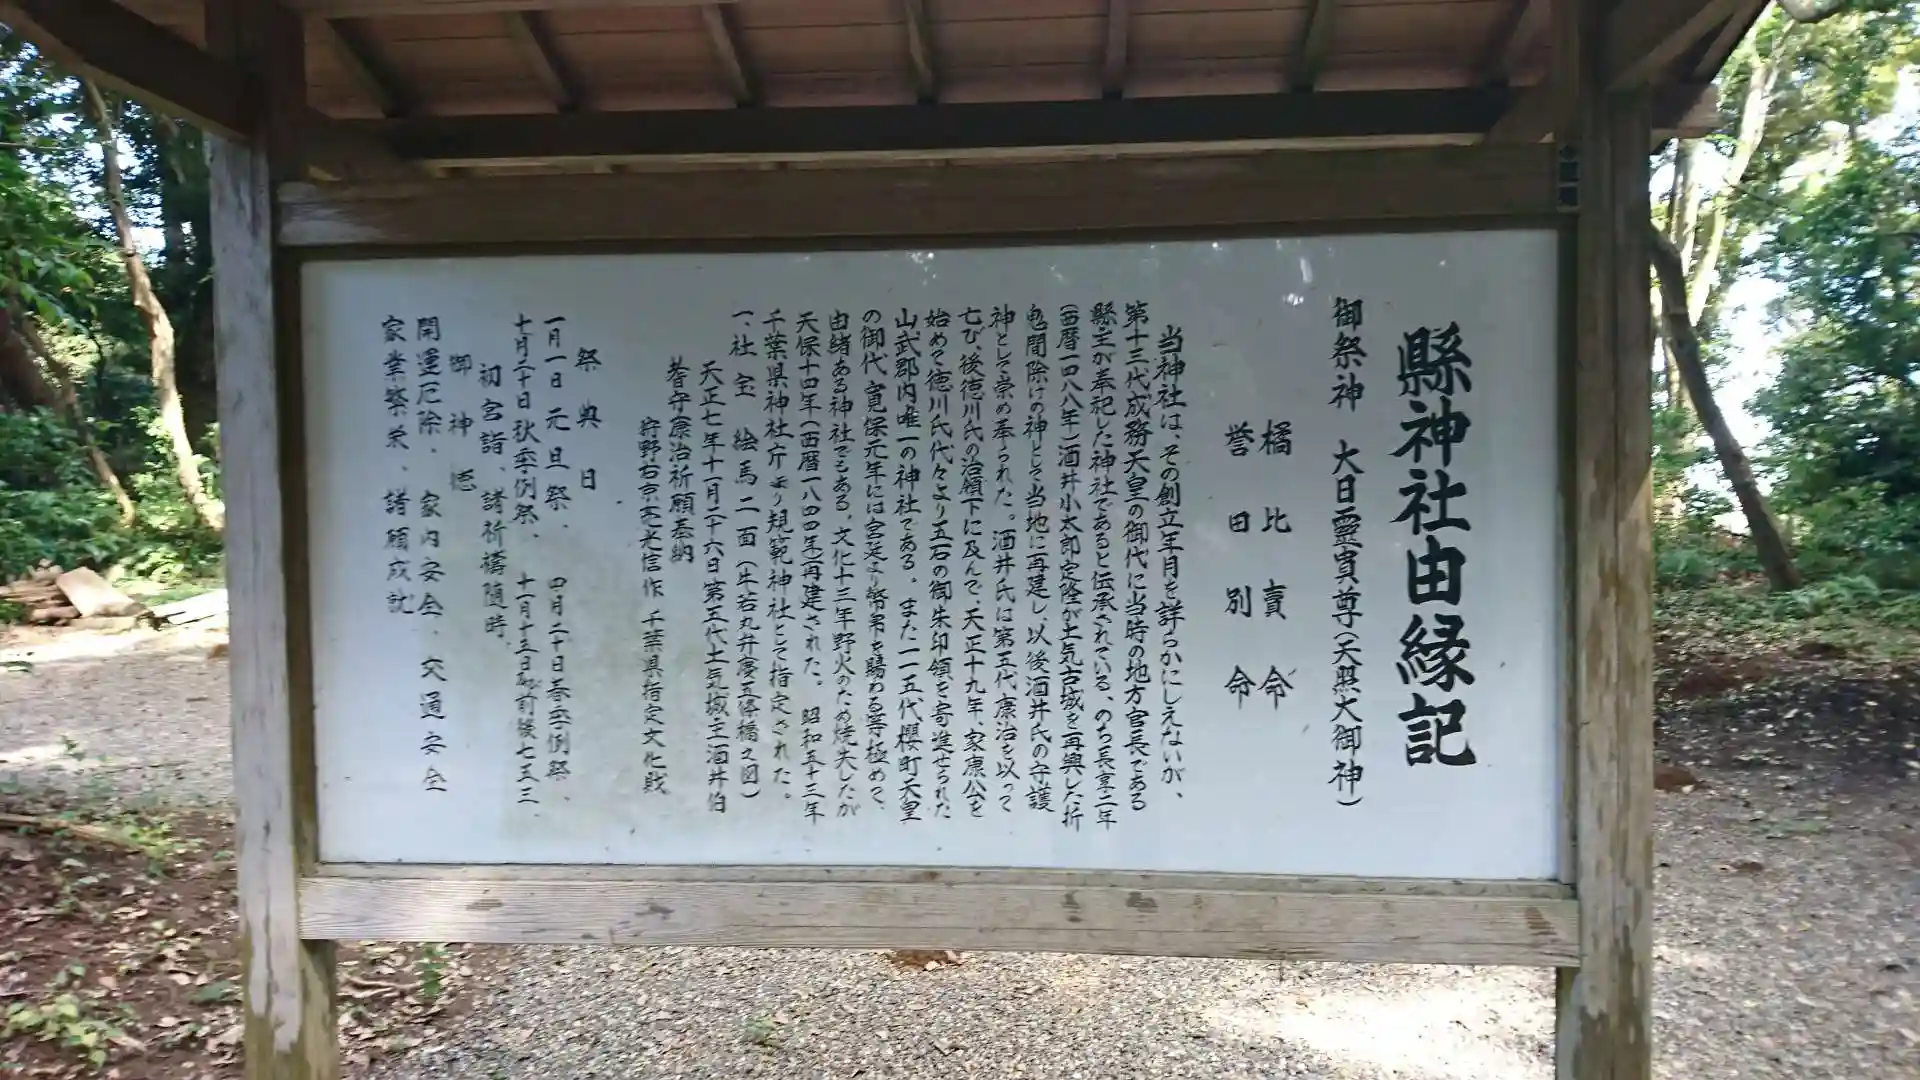 縣神社由縁記
御祭神 大日靈賁尊(天照大御神)
橘比賣命
誉田別命
当神社は、その創立年月を詳らかにしえないが、
第十三代成務天皇の御代に当時の地方官長である
縣主が奉祀した神社であると伝承されている、のち長享二年
(西暦一四八八年)酒井小太郎定隆が土気古城を再興した折
鬼間除けの神として当地に再建し、以後酒井氏の守護
神として崇め奉られた。酒井氏は第五代康治を以って
七び、後徳川氏の治領下に及んで、天正十九年、家康公を
始めて徳川氏代々より五石の御朱印領を寄進せられた
山武郡内唯一の神社である。また一一五代櫻町天皇
の御代 寛保元年には宮廷より幣帛を賜わる等極めて、
由緒ある神社でもある、文化十三年野火のため焼失したが
天保十四年(西暦一八四四年)再建された。 昭和五十三年
千葉県神社庁より規範神社として指定された。
一、社宝 絵馬二面(牛若丸弁慶五條橋之図)
天正七年十一月二十六日第五代土気城主酒井伯
耆守康治祈願奉納
狩野右京亮光信作 千葉県指定文化財
祭典日
一月一日元旦祭、 四月二十日春季例祭、
十月二十日秋季例祭、 十一月十五日及前後七五三、
初宮詣、諸祈禱随時、
御神徳
開運厄除、 家内安全、交通安全
家業繁栄、諸願成就